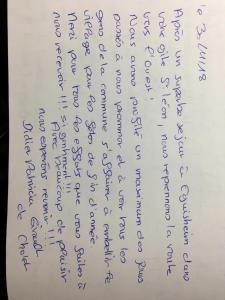 le 30/11/18
Après un superbe séjour à Eguisheim dans
votre gîte St Léon, nous reprenons la route
vers l'Ouest !
Nous avons profité un maximum des jours
passés à nous promener et à voir tous les
gens de la commune s'affairer à embellir le
village pour les fêtes de fin d'année
Merci pour tous les efforts que vous faites à
nous recevoir !!! si gentiment !!!
Avec beaucoup de plaisir
nous espérons revenir !!!
Didier Patricia
de Cholet